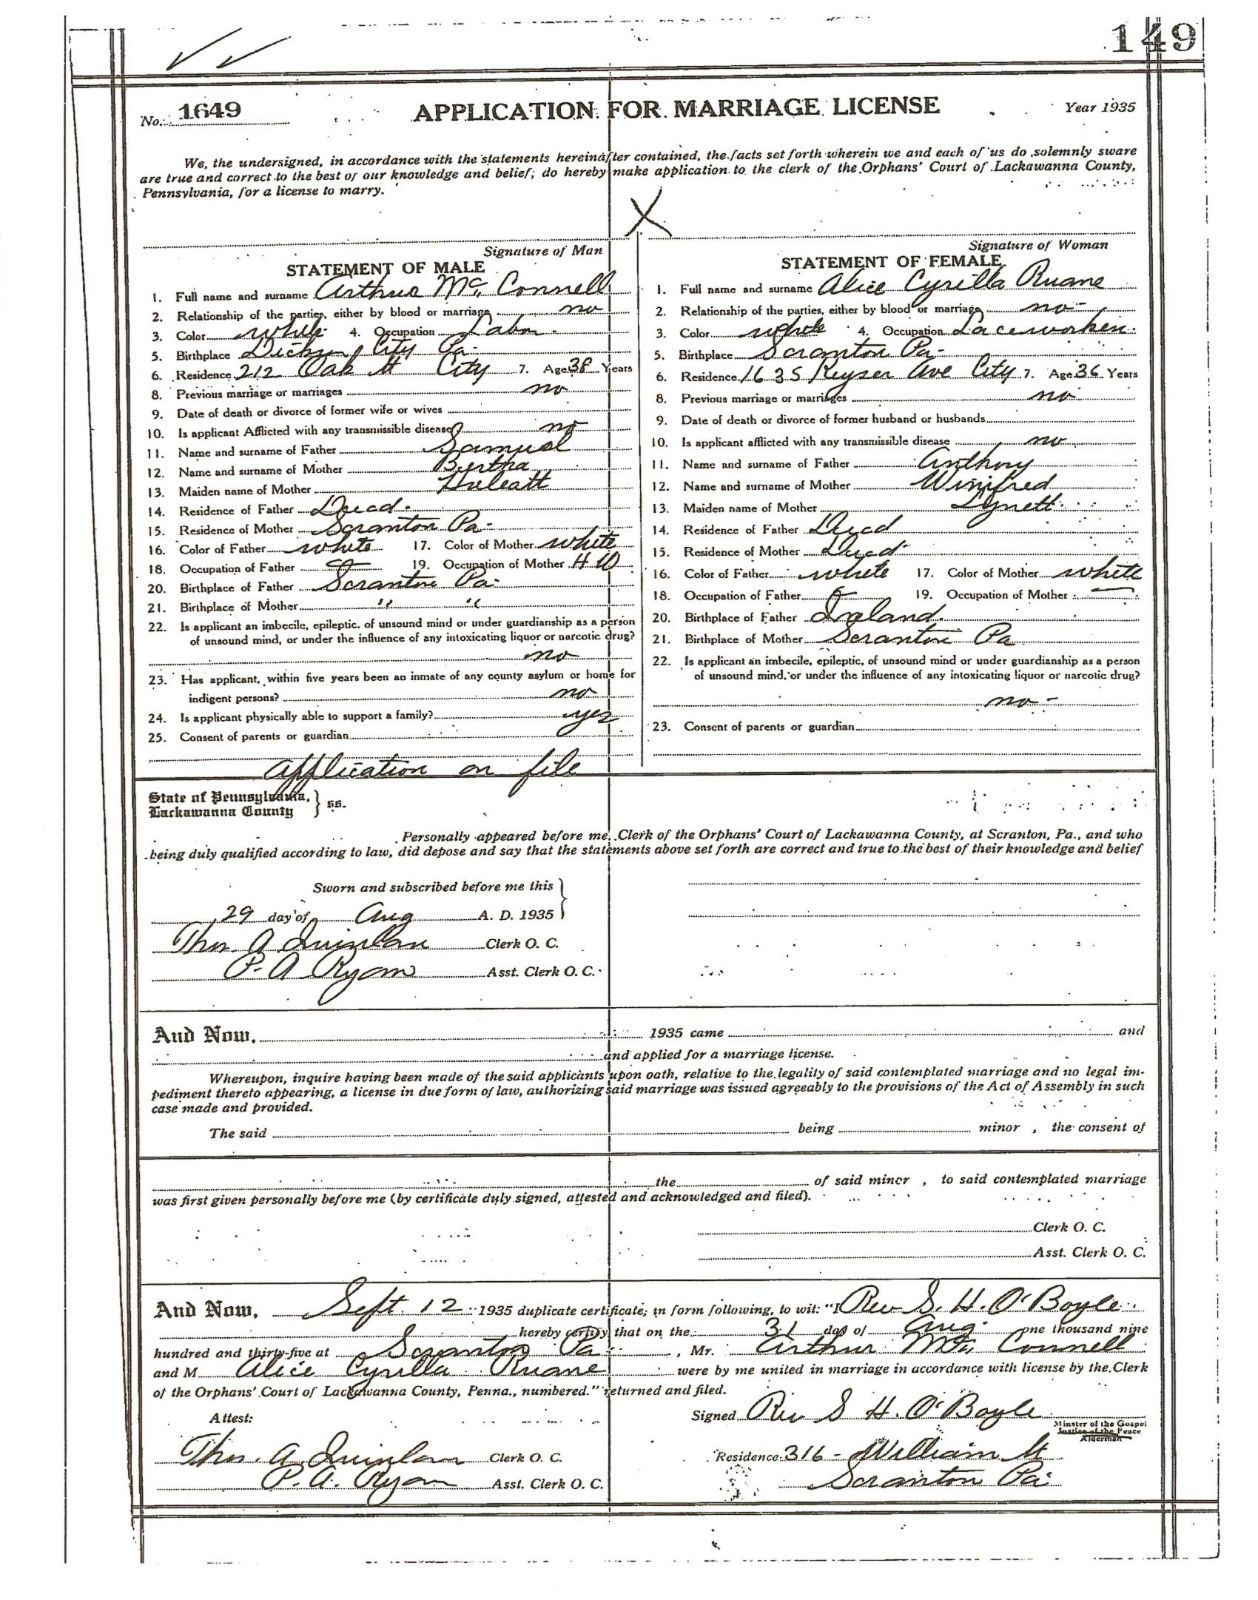 149
No. 1649 APPLICATION FOR MARRIAGE LICENSE Year 1935
We, the undersigned, in accordance with the statements hereinafter contained, the facts set forth wherein we and each of us do solemnly sware
are true and correct to the best of our knowledge and belief; do hereby make application to the clerk of the Orphans' Court of Lackawanna County,
Pennsylvania, for a license to marry.
X
Signature of Man
STATEMENT OF MALE
1. Full name and surname Arthur Mc Connell
2. Relationship of the parties, either by blood or marriage no
3. Color white 4. Occupation Labor
5. Birthplace Dickson City Pa
6. Residence 212 Oak St City 7. Age 38 Years
8. Previous marriage or marriages no
9. Date of death or divorce of former wife or wives
10. Is applicant Afflicted with any transmissible disease no
11. Name and surname of Father Samuel
12. Name and surname of Mother Bertha
13. Maiden name of Mother
14. Residence of Father Decd.
15. Residence of Mother Scranton Pa-
16. Color of Father white 17. Color of Mother white
18. Occupation of Father 19. Occupation of Mother H W
20. Birthplace of Father Scranton Pa-
21. Birthplace of Mother " "
22. Is applicant an imbecile, epileptic, of unsound mind or under guardianship as a person
of unsound mind, or under the influence of any intoxicating liquor or narcotic drug?
no
23. Has applicant, within five years been an inmate of any county asylum or home for
indigent persons? no
24. Is applicant physically able to support a family? yes
25. Consent of parents or guardian
Signature of Woman
STATEMENT OF FEMALE
1. Full name and surname Alice Cyrilla Ruane
2. Relationship of the parties, either by blood or marriage no-
3. Color white 4. Occupation Laceworker
5. Birthplace Scranton Pa-
6. Residence 1635 Keyser Ave City 7. Age 36 Years
8. Previous marriage or marriages no-
9. Date of death or divorce of former husband or husbands
10. Is applicant afflicted with any transmissible disease no
11. Name and surname of Father Anthony
12. Name and surname of Mother Winifred
13. Maiden name of Mother Lynett
14. Residence of Father Decd
15. Residence of Mother Decd
16. Color of Father white 17. Color of Mother white
18. Occupation of Father 19. Occupation of Mother
20. Birthplace of Father Ireland.
21. Birthplace of Mother Scranton Pa
22. Is applicant an imbecile, epileptic, of unsound mind or under guardianship as a person
of unsound mind, or under the influence of any intoxicating liquor or narcotic drug?
no-
23. Consent of parents or guardian
Application on file
State of Pennsylvania,
Lackawanna County } ss.
Personally appeared before me, Clerk of the Orphans' Court of Lackawanna County, at Scranton, Pa., and who
being duly qualified according to law, did depose and say that the statements above set forth are correct and true to the best of their knowledge and belief
Sworn and subscribed before me this
29 day of Aug A. D. 1935
Thos. A Quinlan Clerk O. C.
P. A Ryan Asst. Clerk O. C.
And Now, 1935 came and
and applied for a marriage license.
Whereupon, inquire having been made of the said applicants upon oath, relative to the legality of said contemplated marriage and no legal im-
pediment thereto appearing, a license in due form of law, authorizing said marriage was issued agreeably to the provisions of the Act of Assembly in such
case made and provided.
The said being minor , the consent of
the of said minor , to said contemplated marriage
was first given personally before me (by certificate duly signed, attested and acknowledged and filed).
Clerk O. C.
Asst. Clerk O. C.
And Now, Sept 12 1935 duplicate certificate, in form following, to wit: "I Rev S. H. O'Boyle
hereby certify that on the 31 day of Aug. one thousand nine
hundred and thirty-five at Scranton Pa , Mr. Arthur Mc Connell
and M Alice Cyrilla Ruane were by me united in marriage in accordance with license by the Clerk
of the Orphans' Court of Lackawanna County, Penna., numbered." returned and filed.
Attest: Signed Rev S H. O'Boyle
Minster of the Gospel
Justice of the Peace
Alderman
Thos. A Quinlan Clerk O. C. Residence 316 - William St
P. A. Ryan Asst. Clerk O. C. Scranton Pa.